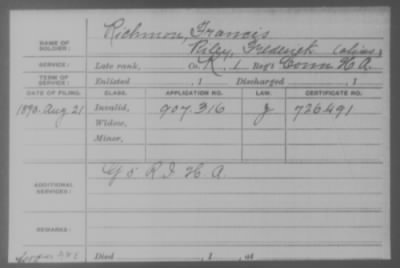 NAME OF SOLDIER: Richmon, Francis
Riley, Frederick (alias)
SERVICE: Late rank, Co. K, 1 Reg't Conn H.A.
TERM OF SERVICE: Enlisted , 1 Discharged , 1
DATE OF FILING. CLASS. APPLICATION NO. LAW. CERTIFICATE NO.
1890. Aug 21 Invalid, 907.316 J 726491
Widow,
Minor,
ADDITIONAL SERVICES: G 5 R I H. A.
REMARKS:
Died , 1 , at